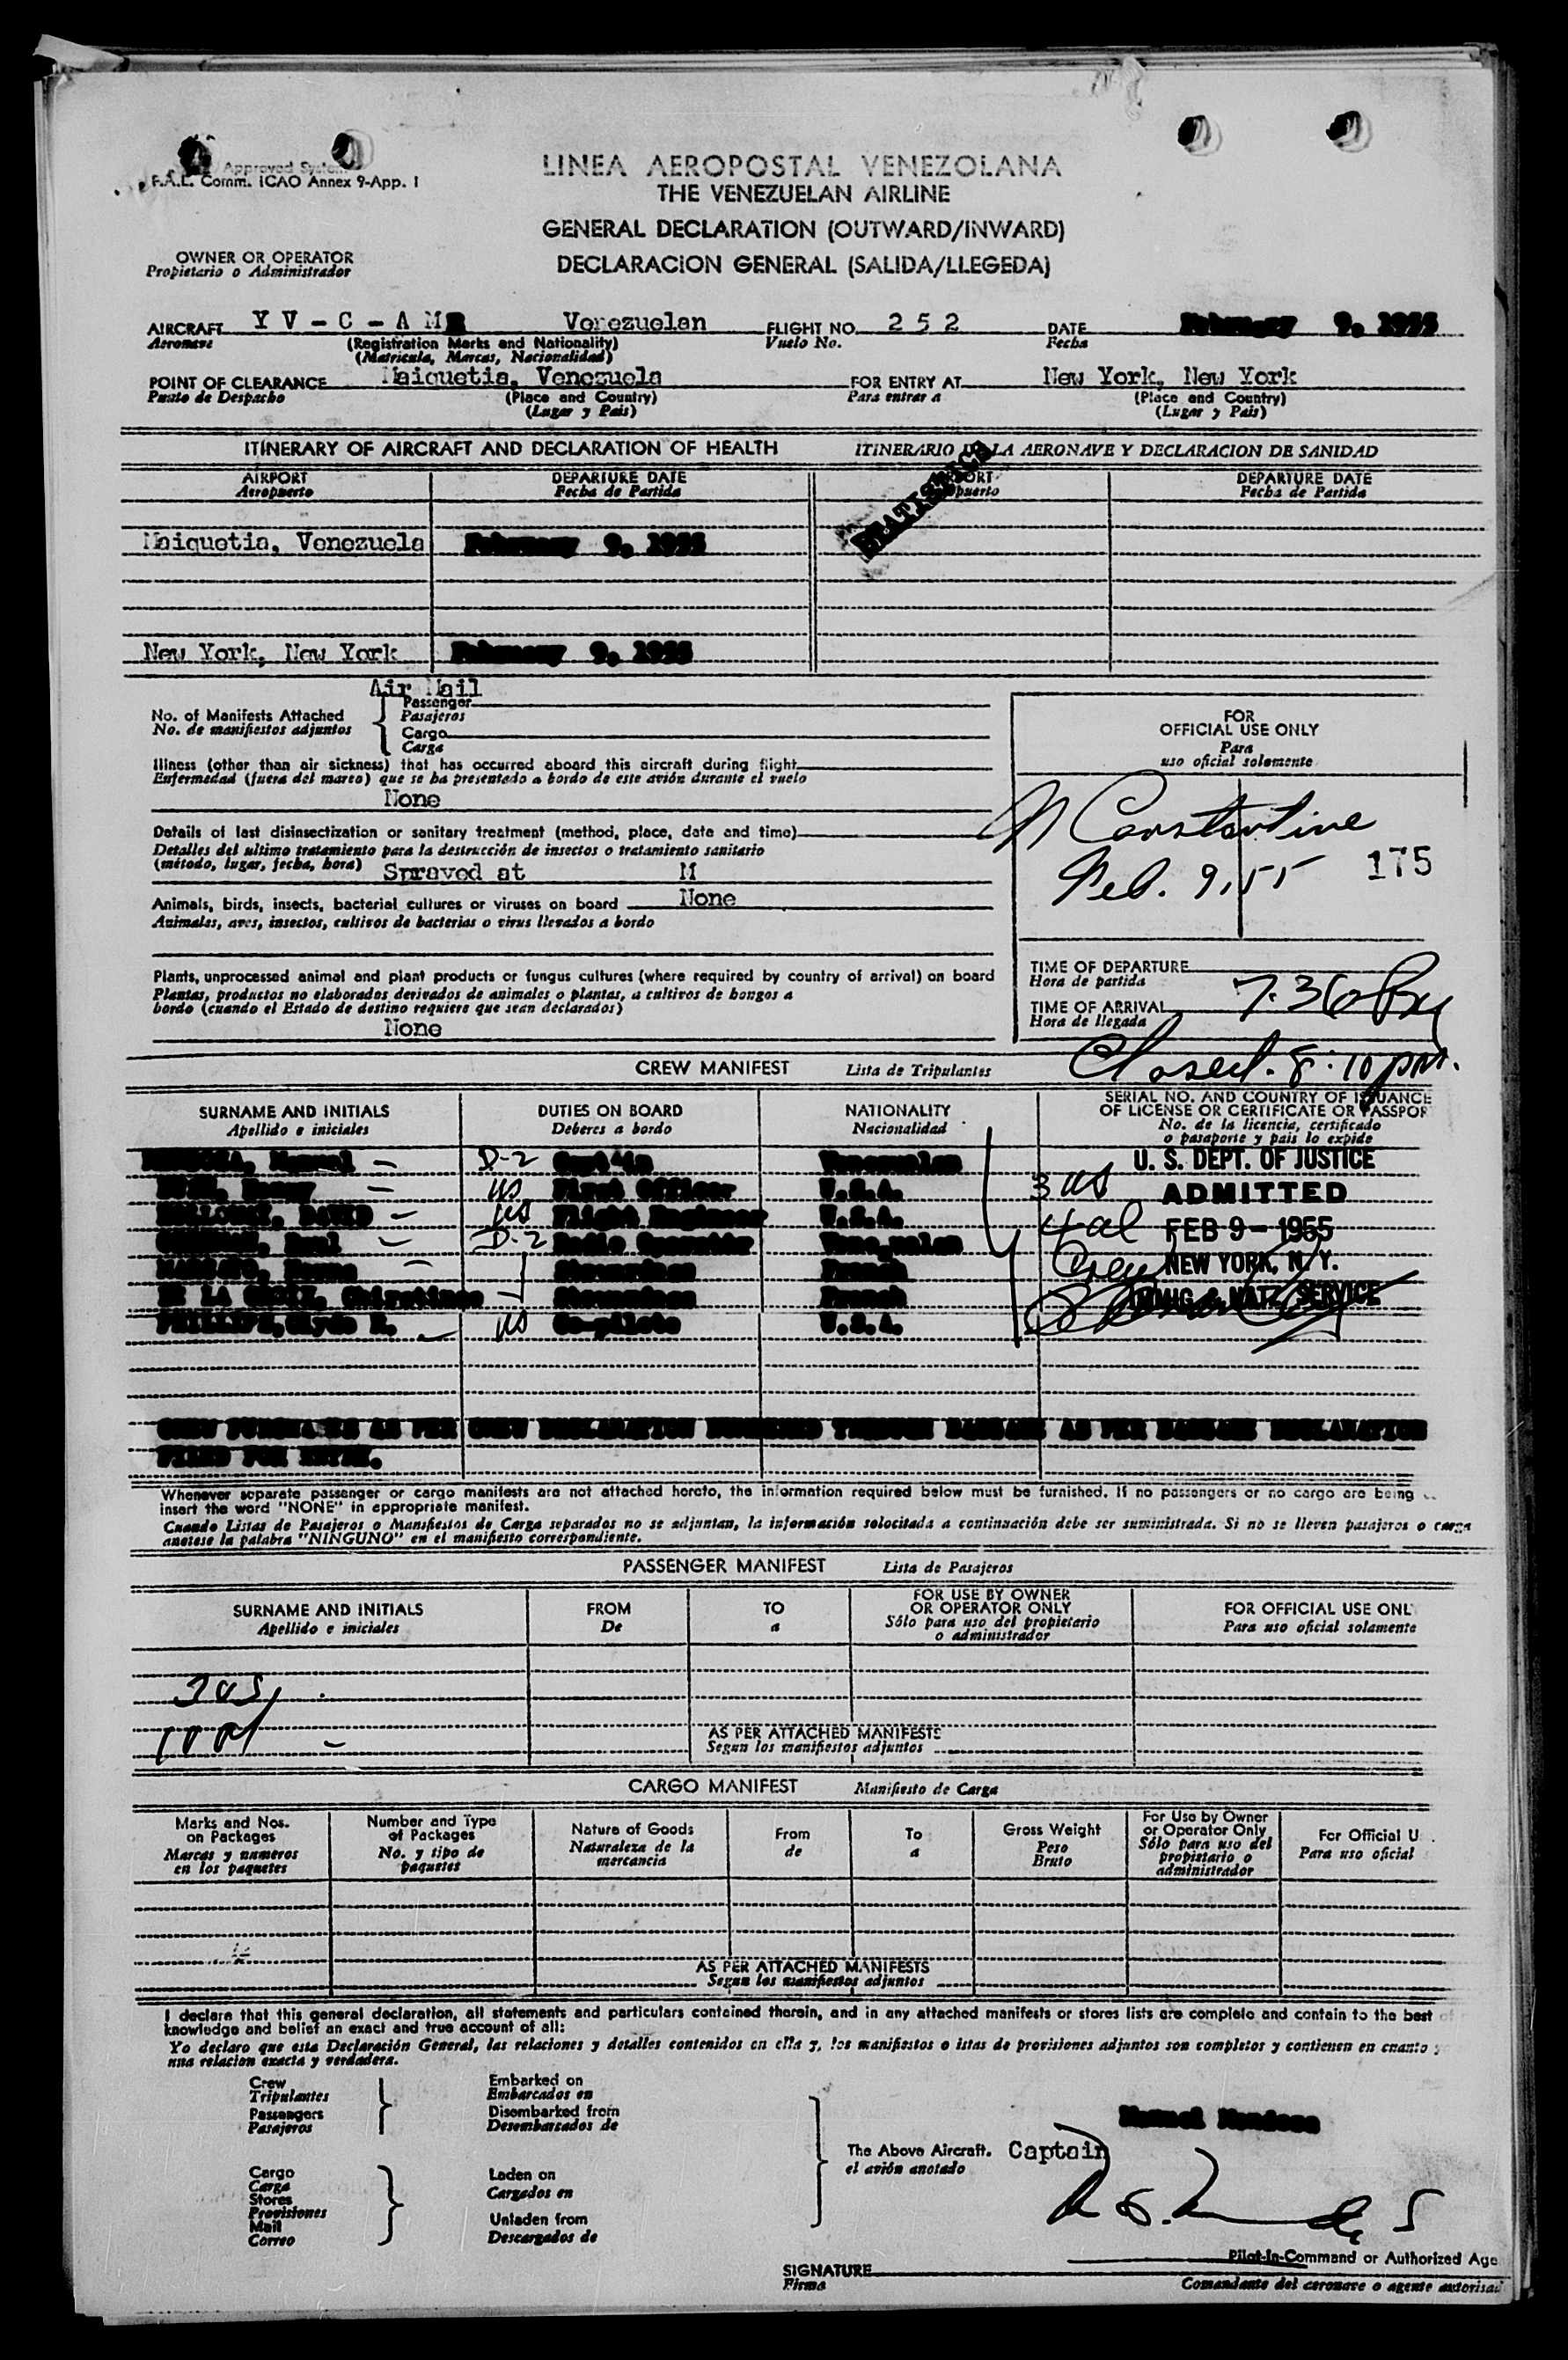 Approved System
F.A.L. Comm. ICAO Annex 9-App. 1
LINEA AEROPOSTAL VENEZOLANA
THE VENEZUELAN AIRLINE
GENERAL DECLARATION (OUTWARD/INWARD)
DECLARACION GENERAL (SALIDA/LLEGEDA)
OWNER OR OPERATOR
Propietario o Administrador
AIRCRAFT Y V - C - A M Venezuelan FLIGHT NO. 2 5 2 DATE February 9, 1955
Aeronave (Registration Marks and Nationality) Vuelo No. Fecha
(Matricula, Marcas, Nacionalidad)
POINT OF CLEARANCE Maiquetia, Venezuela FOR ENTRY AT New York, New York
Punto de Despacho (Place and Country) Para entrar a (Place and Country)
(Lugar y Pais) (Lugar y Pais)
ITINERARY OF AIRCRAFT AND DECLARATION OF HEALTH ITINERARIO DE LA AERONAVE Y DECLARACION DE SANIDAD
AIRPORT DEPARTURE DATE AIRPORT DEPARTURE DATE
Aeropuerto Fecha de Partida Aeropuerto Fecha de Partida
STATISTICS
Maiquetia, Venezuela February 9, 1955
New York, New York February 9, 1955
Air Mail
No. of Manifests Attached Passenger
No. de manifiestos adjuntos Pasajeros
Cargo
Carga
FOR
OFFICIAL USE ONLY
Para
uso oficial solamente
Illness (other than air sickness) that has occurred aboard this aircraft during flight
Enfermedad (fuera del mareo) que se ha presentado a bordo de este avión durante el vuelo
None
Constantine
Feb. 9, 55 175
Details of last disinsectization or sanitary treatment (method, place, date and time)
Detalles del ultimo tratamiento para la destrucción de insectos o tratamiento sanitario
(método, lugar, fecha, hora) Sprayed at M
Animals, birds, insects, bacterial cultures or viruses on board None
Animales, aves, insectos, cultivos de bacterias o virus llevados a bordo
Plants, unprocessed animal and plant products or fungus cultures (where required by country of arrival) on board
Plantas, productos no elaborados derivados de animales o plantas, a cultivos de hongos a
bordo (cuando el Estado de destino requiere que sean declarados)
None
TIME OF DEPARTURE
Hora de partida
TIME OF ARRIVAL 7:36 PM
Hora de llegada
Closed. 8:10 pm.
CREW MANIFEST Lista de Tripulantes
SURNAME AND INITIALS DUTIES ON BOARD NATIONALITY SERIAL NO. AND COUNTRY OF ISSUANCE
OF LICENSE OR CERTIFICATE OR PASSPOR
Apellido e iniciales Deberes a bordo Nacionalidad No. de la licencia, certificado
o pasaporte y pais lo expide
Manuel D-2 Captain Venezuelan
US First Officer U.S.A.
DAVID US Flight Engineer U.S.A.
D-2 Radio Operator Venezuelan
Stewardess French
DE LA Stewardess French
PHILLIPS, Clyde US Co-pilote U.S.A.
3 US
4 al
Crew
U. S. DEPT. OF JUSTICE
ADMITTED
FEB 9 - 1955
NEW YORK, N. Y.
IMMIG. & NATZ. SERVICE
CREW AS PER CREW DECLARATION THROUGH BAGGAGE AS PER BAGGAGE DECLARATION
FILED FOR ENTRY.
Whenever separate passenger or cargo manifests are not attached hereto, the information required below must be furnished. If no passengers or no cargo are being
insert the word "NONE" in appropriate manifest.
Cuando Listas de Pasajeros o Manifiestos de Carga separados no se adjuntan, la información solocitada a continuación debe ser suministrada. Si no se lleven pasajeros o carga
anotese la palabra "NINGUNO" en el manifiesto correspondiente.
PASSENGER MANIFEST Lista de Pasajeros
SURNAME AND INITIALS FROM TO FOR USE BY OWNER
OR OPERATOR ONLY FOR OFFICIAL USE ONL
Apellido e iniciales De a Sólo para uso del propietario
o administrador Para uso oficial solamente
AS PER ATTACHED MANIFESTS
Segun los manifiestos adjuntos
CARGO MANIFEST Manifiesto de Carga
Marks and Nos.
on Packages
Marcas y numeros
en los paquetes
Number and Type
of Packages
No. y tipo de
paquetes
Nature of Goods
Naturaleza de la
mercancia
From
de
To
a
Gross Weight
Peso
Bruto
For Use by Owner
or Operator Only
Sólo para uso del
propietario o
administrador
For Official U
Para uso oficial
AS PER ATTACHED MANIFESTS
Segun los manifiestos adjuntos
I declare that this general declaration, all statements and particulars contained therein, and in any attached manifests or stores lists are complete and contain to the best of
knowledge and belief an exact and true account of all:
Yo declaro que esta Declaración General, las relaciones y detalles contenidos en ella y, los manifiestos o istas de provisiones adjuntos son completos y contienen en cuanto y
una relacion exacta y verdadera.
Crew
Tripulantes
Passengers
Pasajeros
Embarked on
Embarcados en
Disembarked from
Desembarcados de
Cargo
Carga
Stores
Provisiones
Mail
Correo
Laden on
Cargados en
Unladen from
Descargados de
Manuel Mendoza
The Above Aircraft. Captain
el avión anotado
Pilot-in-Command or Authorized Age
SIGNATURE
Firma
Comandante del aeronave o agente autorisad